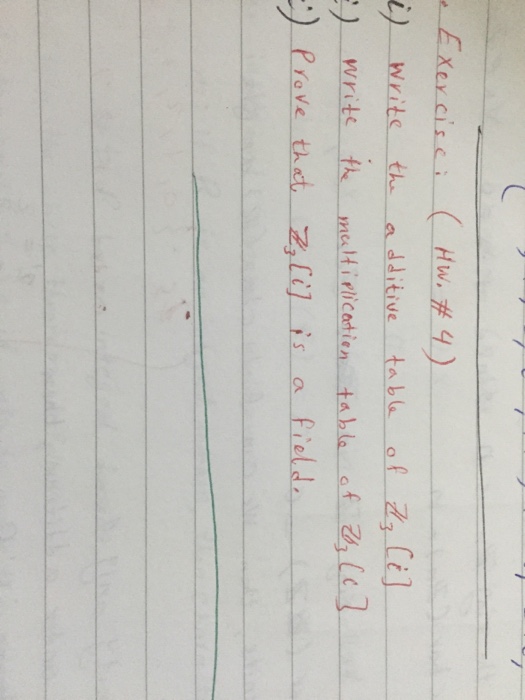 . Exercise: (HW. #4)
i) write the additive table of ℤ₃[i]
i) write the multiplication table of ℤ₃[i]
i) Prove that ℤ₃[i] is a field.